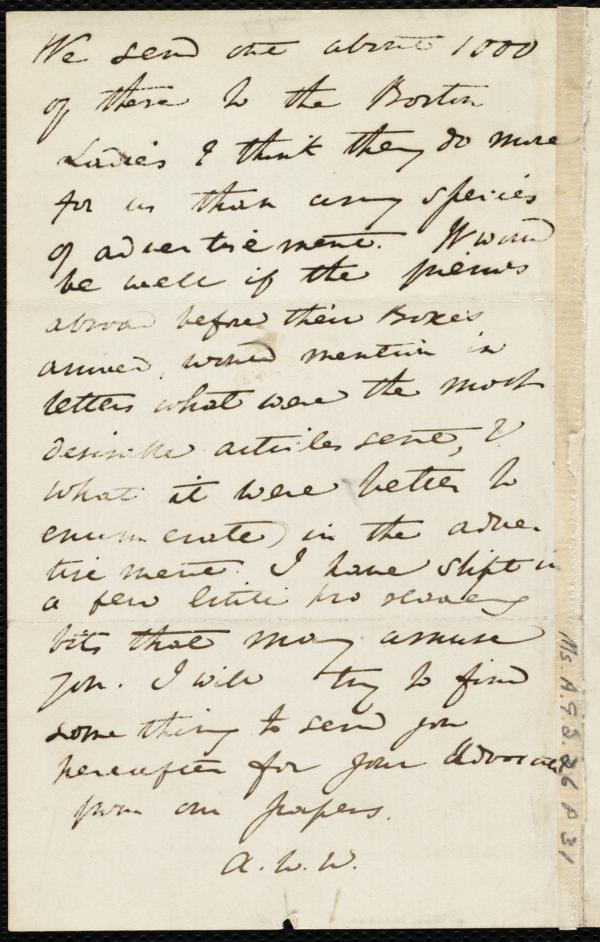 We send out about 1000
of these to the Boston
Ladies & think they do more
for us than any species
of advertisement. It would
be well if the friends
abroad before their Boxes
arrived, would mention in
letters what were the most
desirable articles sent, &
what it were better to
enumerate in the adver
tisement. I have slipt in
a few little pro slavery
bits that may amuse
you. I will try to find
some thing to send you
hereafter for your Advocate
from our papers.
A. W. W.
Ms. A.9.2.26 p 31